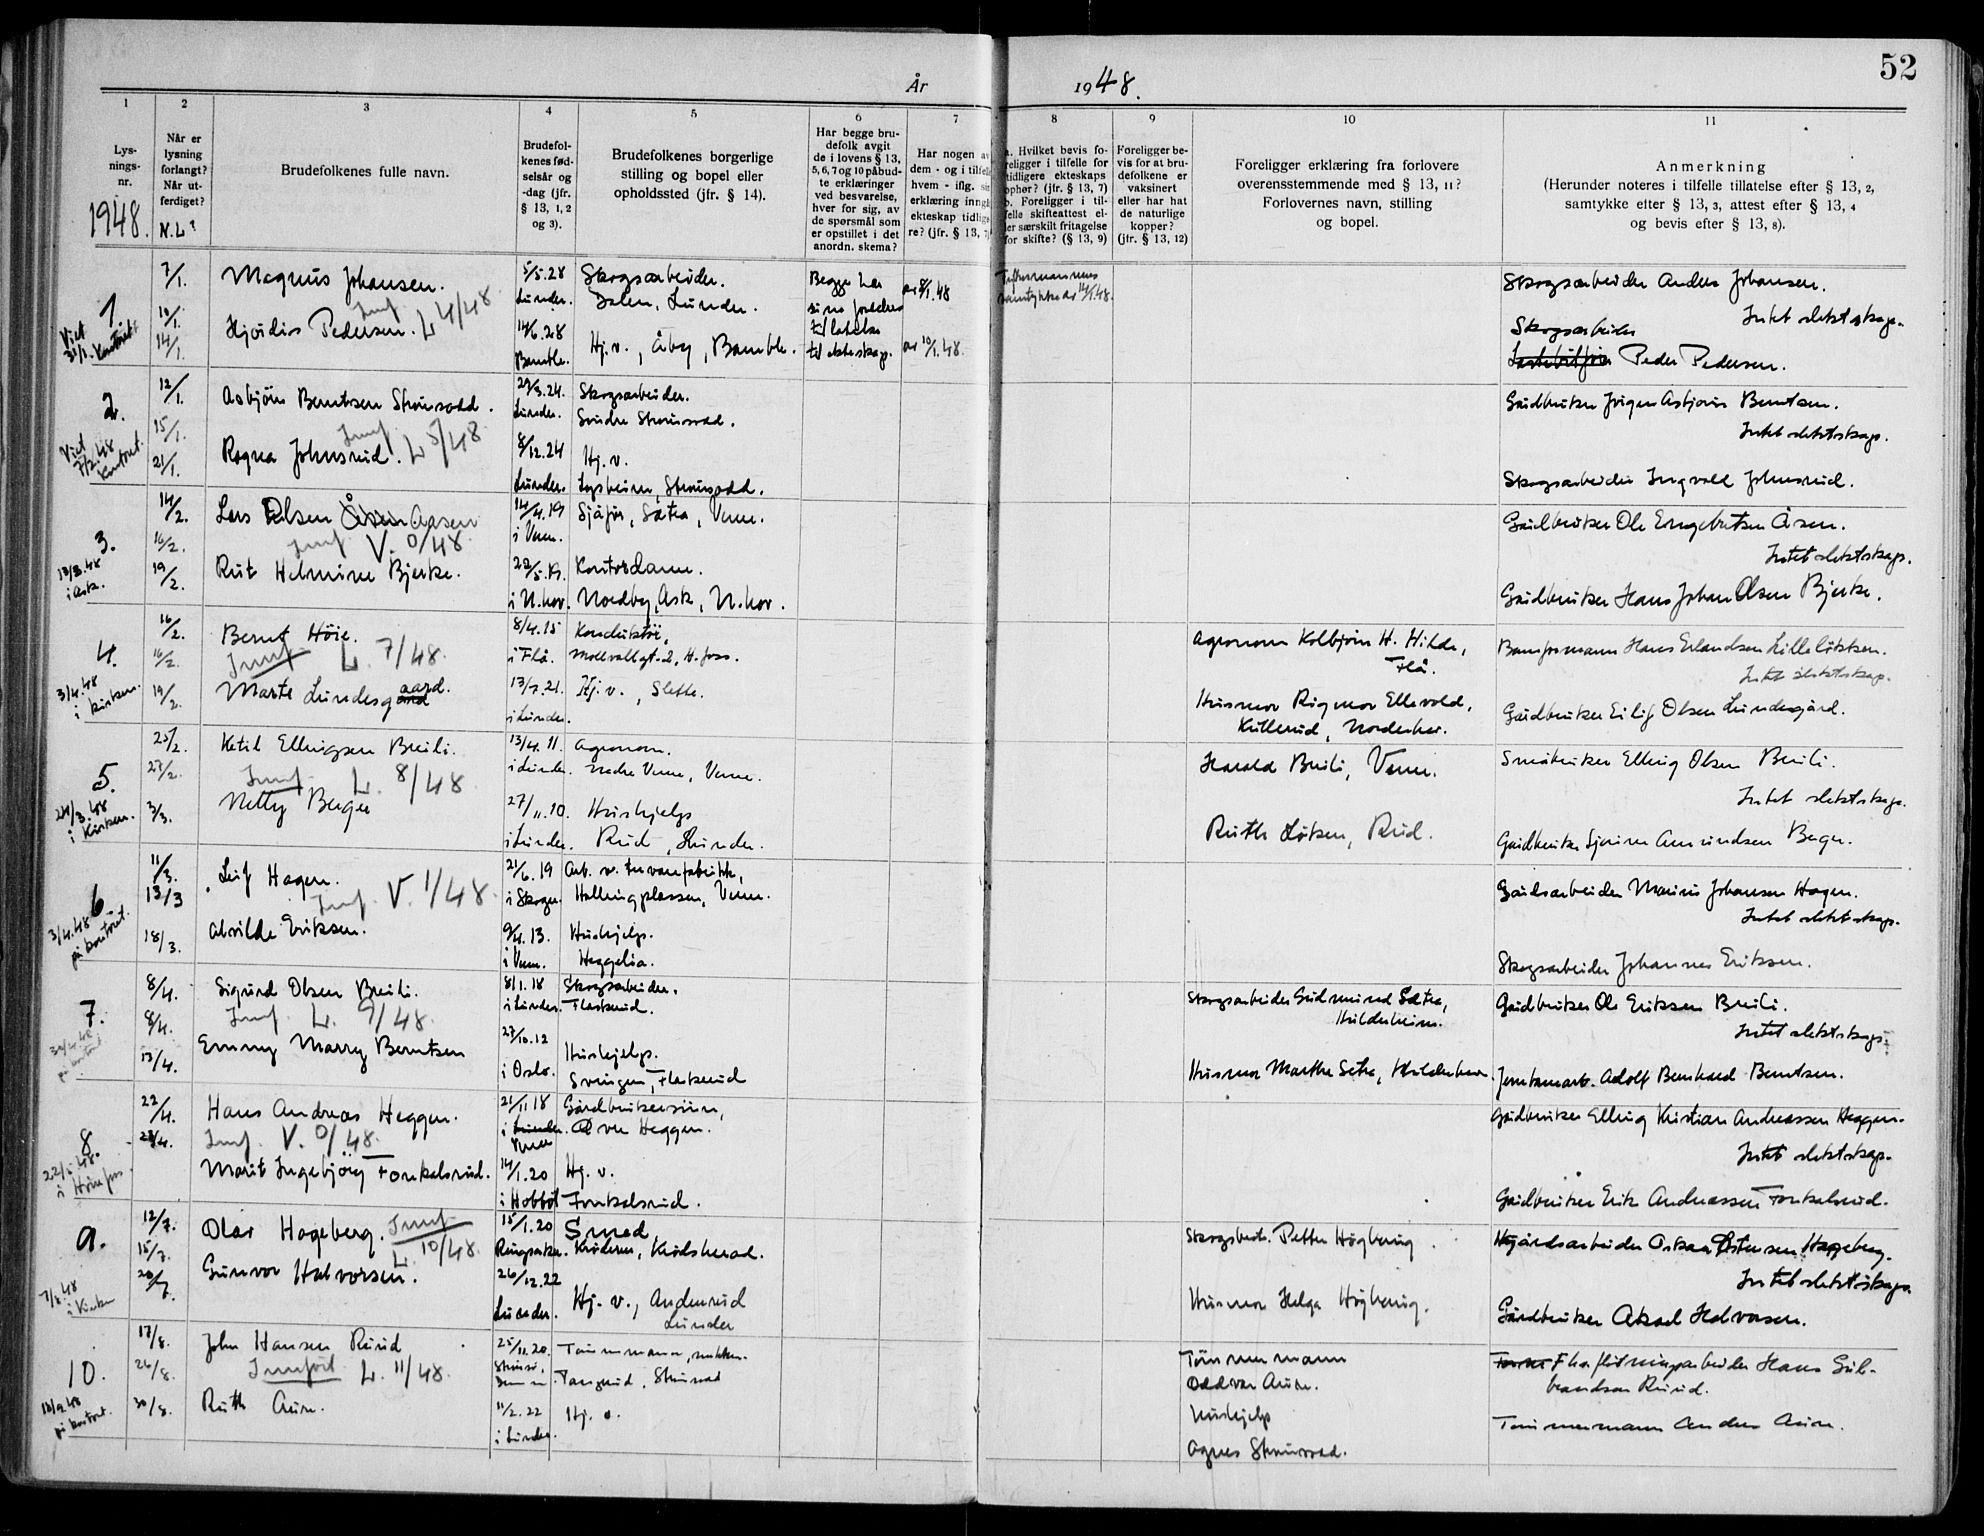 52
År 1948.
1 2 3 4 5 6 7 8 9 10 11
Lys-
nings-
nr.
1948.
Når er
lysning
forlangt?
Når ut-
ferdiget?
N.L?
Brudefolkenes fulle navn.
Brudefol-
kenes fød-
selsår og
-dag (jfr.
§ 13, 1, 2
og 3).
Brudefolkenes borgerlige
stilling og bopel eller
opholdssted (jfr. § 14).
Har begge bru-
defolk avgit
de i lovens § 13,
5, 6, 7 og 10 påbud-
te erklæringer
ved besvarelse,
hver for sig, av
de spørsmål som
er opstillet i det
anordn. skema?
Har nogen av
dem - og i tilfelle
hvem - iflg. sin
erklæring inngå
ekteskap tidlige
re? (jfr. § 13, 7)
a. Hvilket bevis fo-
religger i tilfelle for
tidligere ekteskaps
ophør? (jfr. § 13, 7)
b. Foreligger i til-
felle skifteattest el-
ler særskilt fritagelse
for skifte? (§ 13, 9)
Foreligger be-
vis for at bru-
defolkene er
vaksinert
eller har hat
de naturlige
kopper?
(jfr. § 13, 12)
Foreligger erklæring fra forlovere
overensstemmende med § 13, 11?
Forlovernes navn, stilling
og bopel.
Anmerkning
(Herunder noteres i tilfelle tillatelse efter § 13, 2,
samtykke efter § 13, 3, attest efter § 13, 4
og bevis efter § 13, 8).
1. 7/1. Magnus Johansen. 5/5.28 Skogsarbeider. Begge har av 8/1.48 Skogsarbeider Anders Johansen.
Lunder. Dalen, Lunder. sine foreldres samtykke av 14/1.48.
10/1. Innf. L 4/48 Intet slektskap.
14/1. Hjørdis Pedersen. 14/6.28 Hj.v., Åby, Bamble. tillatelse Skogsarbeider
Viet 31/1. Kontoret Bamble. til ekteskap. av 10/1.48. Peder Pedersen.
2. 12/1. Asbjørn Berntsen Strømsodd. 29/3.24. Skogsarbeider. Gårdbruker Jørgen Asbjørn Berntsen.
Lunder. Søndre Strømsod.
15/1. Innf. L 5/48 Intet slektskap.
Viet 7/2.48 Kontoret. 21/1. Ragna Johnsrud. 8/12.24 Hj.v.
Lunder. Strømsodd. Skogsarbeider Ingvald Johnsrud.
3. 14/2. Lars Olsen Aasen 14/4.19 Sjåfør, Sætra, Veme. Gårdbruker Ole Engebretsen Åsen.
16/2. Innf. V. 0/48 i Veme. Intet slektskap.
13/3.48 i Ask. 19/2. Rut Helmine Bjerke. 22/5.19. Kontordame.
i N.hov. Nordby, Ask, N.hov. Gårdbruker Hans Johan Olsen Bjerke.
4. 16/2. Bernt Høie. 8/4.15 Konduktør, Agronom Kolbjørn H. Hilde, Hans Erlandsen Lilleløkken.
16/2. Innf L. 7/48. i Flå. H.foss. Flå. Intet slektskap.
3/4.48 i kirken. 19/2. Marte Lundesgaard. 13/7.21. Hj.v., Slette. Husmor Rigmor Ellevold, Gårdbruker Eilif Olsen Lundesgård.
i Lunder. Kullerud, Norderhov.
5. 25/2. Ketil Ellingsen Breili. 13/4.11. Agronom. Harald Breili, Veme. Småbruker Elling Olsen Breili.
27/2. Innf. L. 8/48 i Lunder. Nedre Veme, Veme. Intet slektskap.
24/3.48 i Kirken. 3/3. Nelly Berger 27/11.10. Hushjelp Ruth Løken, Rud.
i Lunder. Rud, Lunder. Gårdbruker Amundsen Beger.
6. 11/3. Leif Hagen. 21/6.19 Arb. v. trevarefabrikk, Gårdsarbeider Marius Johansen Hagen.
13/3 Innf. V. 1/48. i Skoger. Hallingplassen, Veme. Intet slektskap.
3/4.48 på kontoret. 18/3. Alvilde Eriksen. 9/4.13. Hushjelp.
i Veme. Heggelia. Skogsarbeider Johannes Eriksen.
7. 8/4. Sigurd Olsen Breili. 8/1.18 Skogsarbeider. Skogsarbeider Gudmund Sætra, Gårdbruker Ole Eriksen Breili.
8/4. Innf. L. 9/48. i Lunder. Flaskerud. Hildeheim. Intet slektskap.
13/4. Emmy Marry Berntsen 27/10.12 Hushjelp.
i Oslo. Svingen, Flaskerud Husmor Marthe Sætra, Hildeheim. Adolf Bernhard Berntsen.
8. 22/4. Hans Andreas Heggen. 21/11.18 Gårdbrukersønn, Gårdbruker Elling Kristian Andreassen Heggen.
Innf. V. 0/48. i Lunder. Øvre Heggen. Intet slektskap.
Veme
Marit Ingebjørg Fonkalsrud. 14/1.20 Hj.v.
i Hobbøl Fonkalsrud. Gårdbruker Erik Andreassen Fonkalsrud.
9. 12/7. Olav Hageberg. Innf 15/1.20 Smed, Petter Høgberg. Oskar Østensen Hageberg.
15/7. L 10/48. Ringsaker. Krøderen, Krødsherad. Intet slektskap.
7/8.48 i Kirken 20/7. Gunvor Halvorsen. 26/12.22 Hj.v., Anderud Husmor Helga Høgberg.
Lunder. Lunder Gårdbruker Aksel Halvorsen.
10. 17/8. John Hansen Ruud 25/11.20. Tømmermann, Tømmermann Fløtningsarbeider Hans Gul-
26/8. Innført L. 11/48. Oddvar Auren. brandsen Ruud.
på kontoret. 30/8. Ruth Auren. 11/2.22 Hj.v. Hushjelp Tømmermann Anders Auren.
i Lunder. Agnes Strømsod.